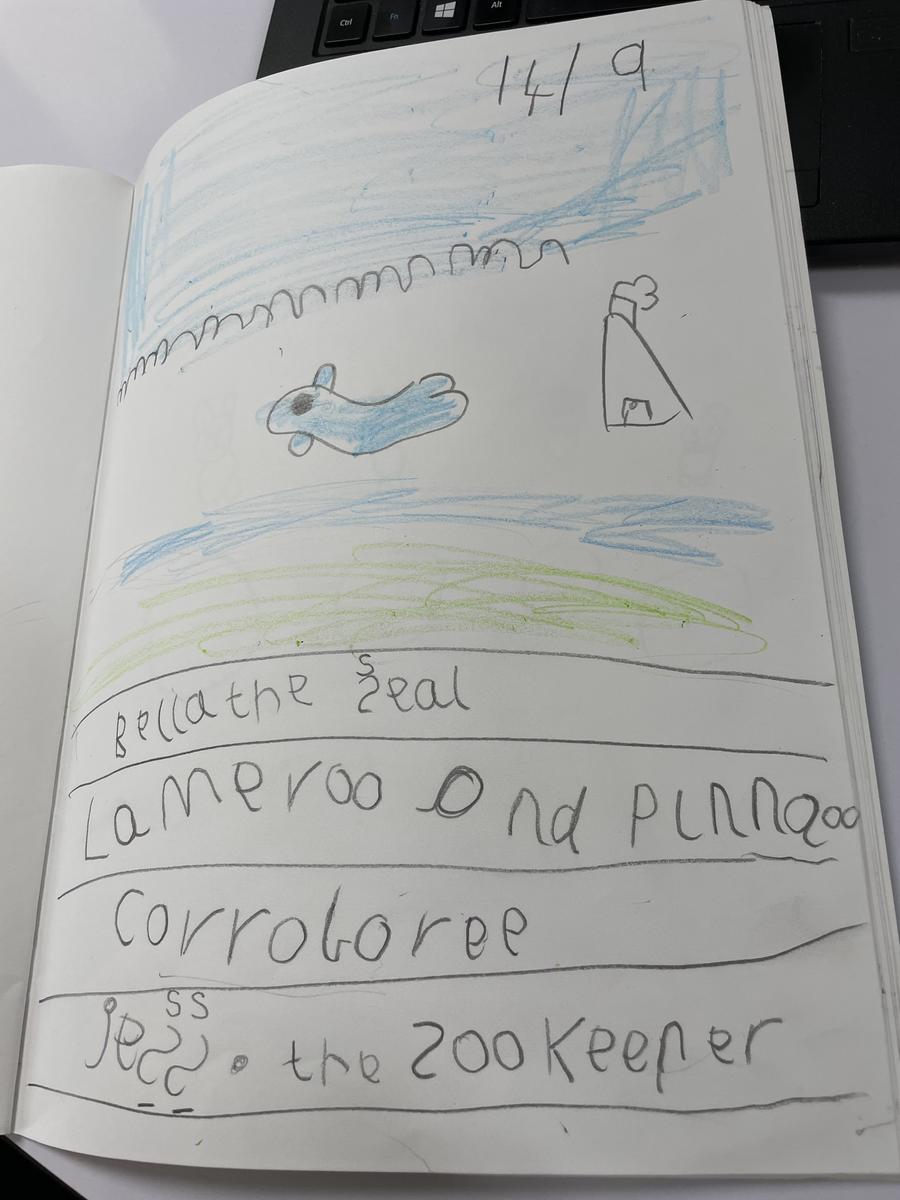 Ctrl Fn Alt
14/9
Bella the Seal
s
Lameroo And Pinnaoo
Corroboree
ss
jess. the zookeeper